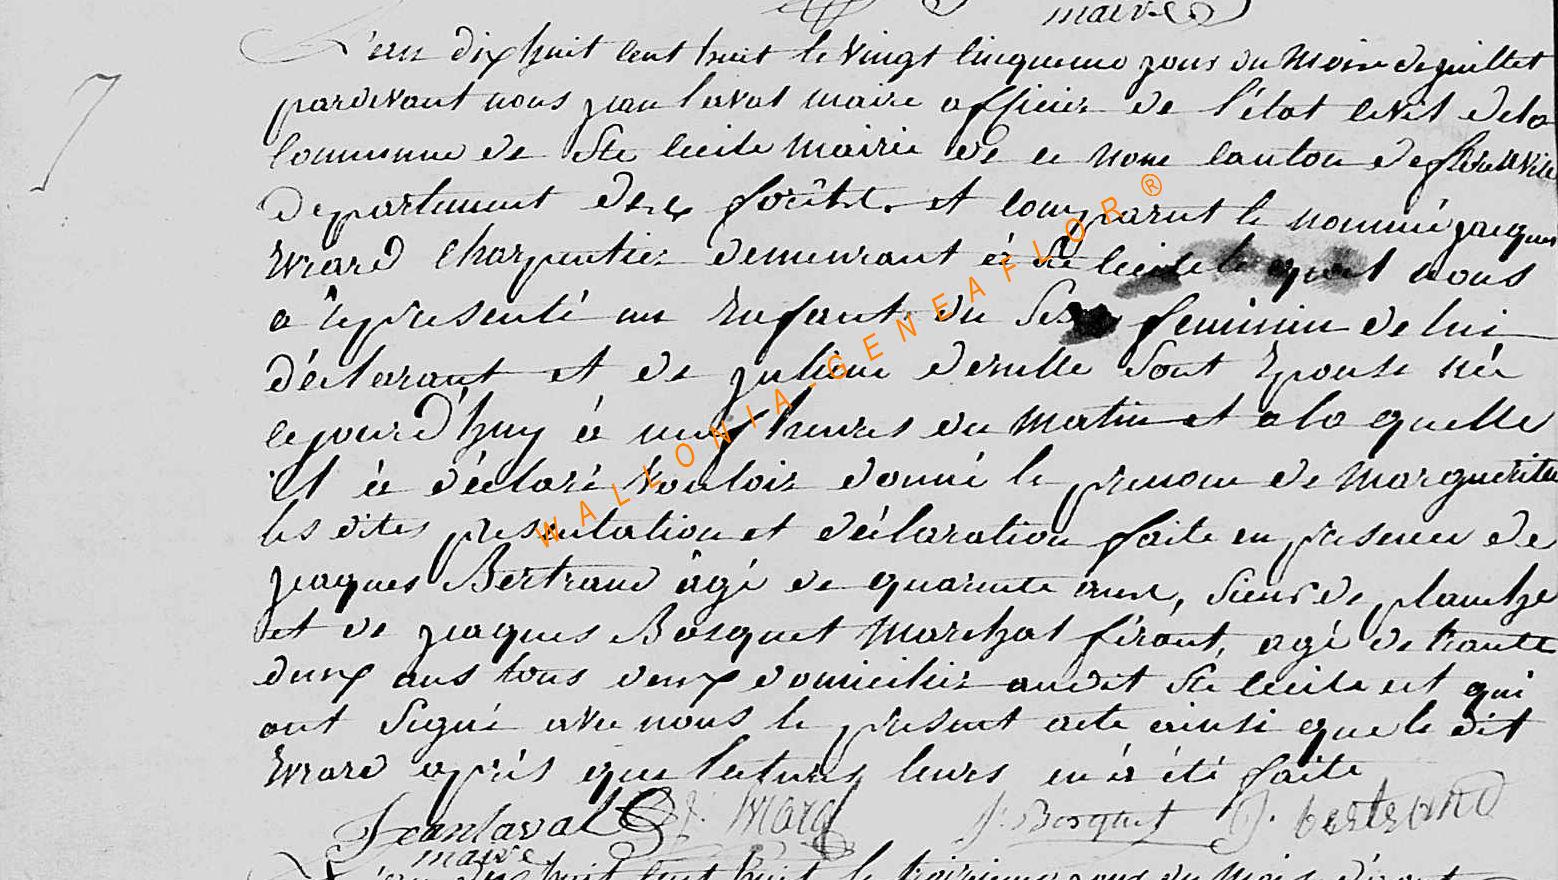 maire
7
L'an dix huit cent huit le vingt cinqueme jour du mois de juillet
pardevant nous jean laval maire officier de l'état civil de la
Commune de Ste Cecile mairie de ce nom canton de florenville
departement des forêts et comparut le nommé jacques
Evrard Charpentier demeurant à Ste Cecile le quel nous
a representé un Enfant du Sexe feminin de lui
déclarant et de juliene son Epouse née
cejourd'huy à neuf heures du matin et a la quelle
il à déclaré vouloir donné le prenom de Marguerite
les dites presentation et déclaration faite en presence de
jacques Bertrand âgé de quarente ans, sieur de planche
et de jacques Bosquet Marchal férant, agé de trante
deux ans tous deux domicilier audit Ste Cecile et qui
ont Signé avec nous le present acte ainsi que le dit
Evrard après que lectures leurs en à été faite
Jean laval J. Bosquet J. bertrand
maire
L'an dix huit cent huit le troisieme jour du mois d'aout
WALLONIA-GENEAFLOR®